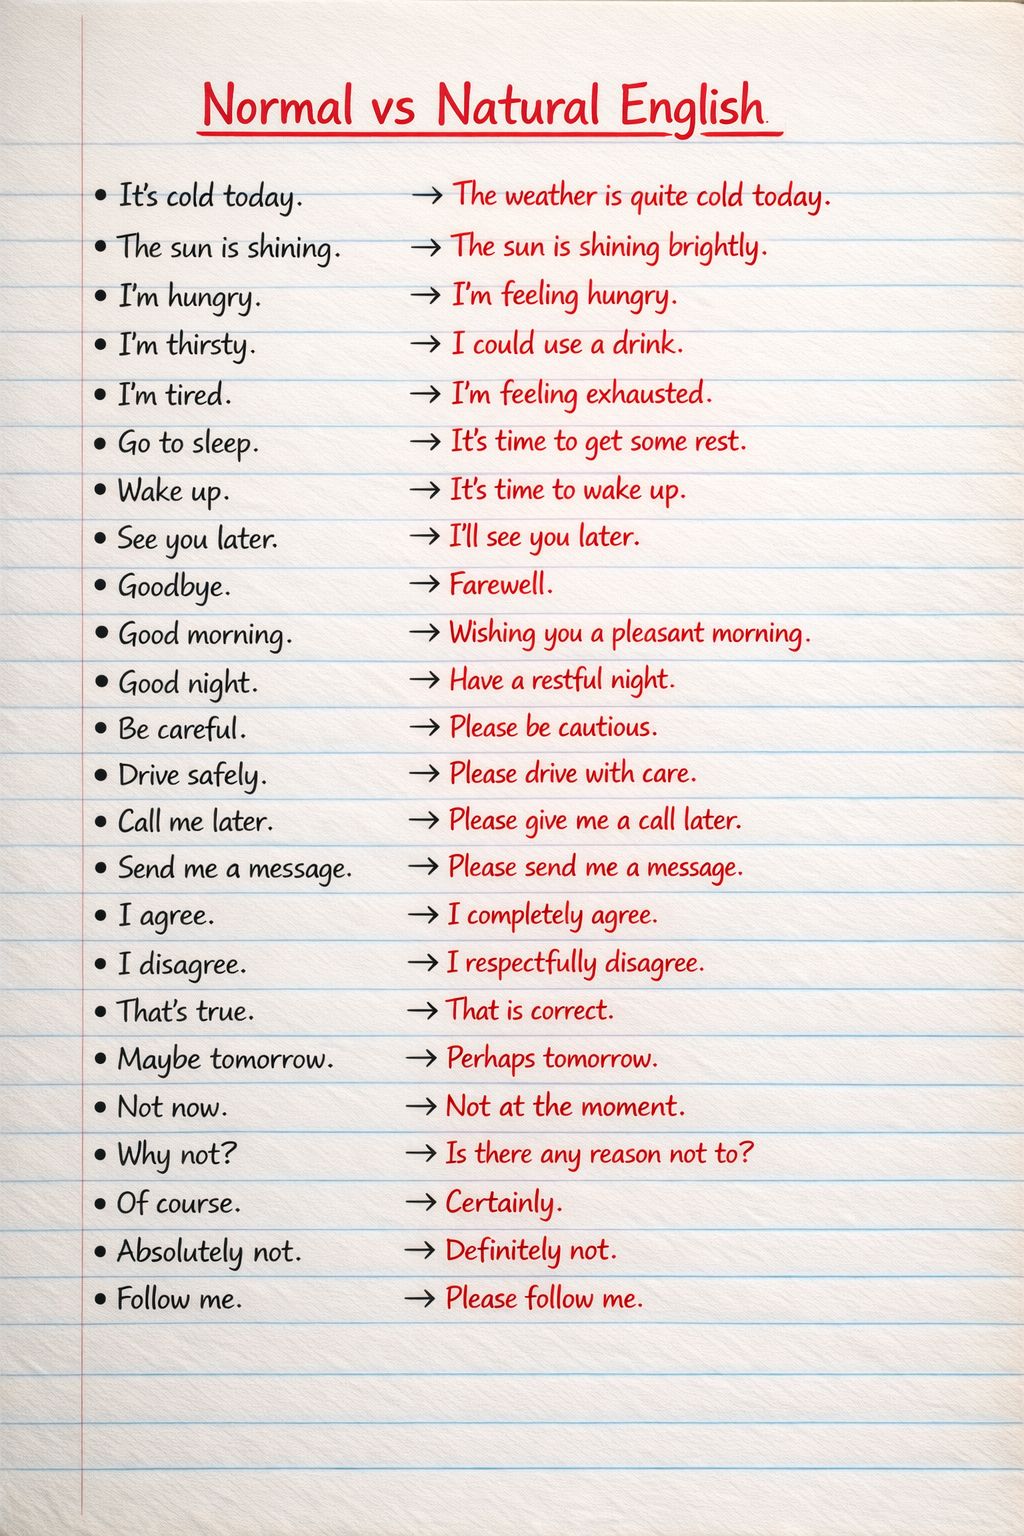 Normal vs Natural English.
• It's cold today. → The weather is quite cold today.
• The sun is shining. → The sun is shining brightly.
• I'm hungry. → I'm feeling hungry.
• I'm thirsty. → I could use a drink.
• I'm tired. → I'm feeling exhausted.
• Go to sleep. → It's time to get some rest.
• Wake up. → It's time to wake up.
• See you later. → I'll see you later.
• Goodbye. → Farewell.
• Good morning. → Wishing you a pleasant morning.
• Good night. → Have a restful night.
• Be careful. → Please be cautious.
• Drive safely. → Please drive with care.
• Call me later. → Please give me a call later.
• Send me a message. → Please send me a message.
• I agree. → I completely agree.
• I disagree. → I respectfully disagree.
• That's true. → That is correct.
• Maybe tomorrow. → Perhaps tomorrow.
• Not now. → Not at the moment.
• Why not? → Is there any reason not to?
• Of course. → Certainly.
• Absolutely not. → Definitely not.
• Follow me. → Please follow me.